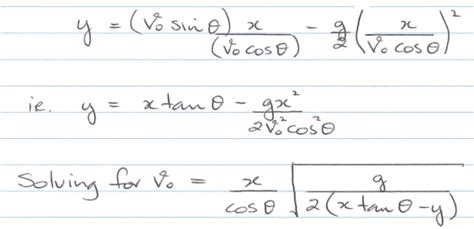 y = (v₀ sin θ) x/(v₀ cos θ) - g/2 (x/(v₀ cos θ))²
ie. y = x tan θ - gx²/(2v₀² cos² θ)
Solving for v₀ = x/cos θ √(g/(2(x tan θ - y)))